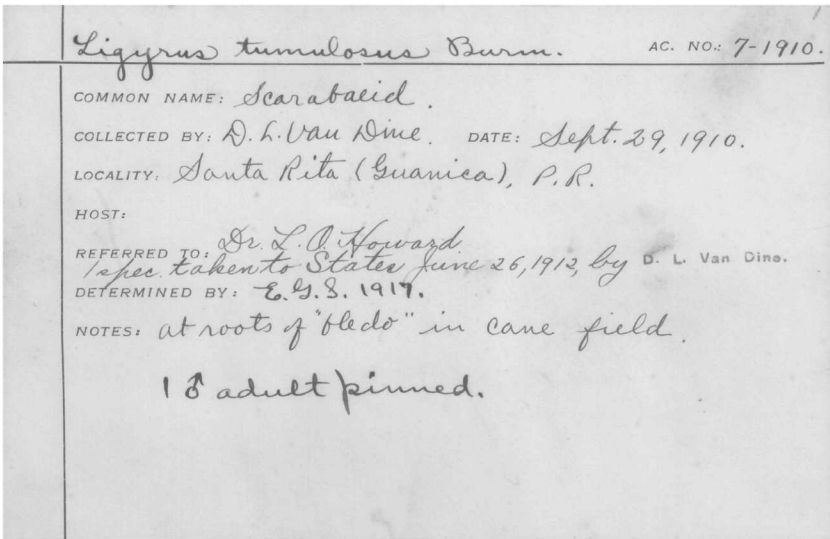 Ligyrus tumulosus Burm. AC. NO.: 7-1910.
COMMON NAME: Scarabaeid.
COLLECTED BY: D. L. Van Dine. DATE: Sept. 29, 1910.
LOCALITY: Santa Rita (Guanica), P.R.
HOST:
REFERRED TO: Dr. L. O. Howard
1 spec. taken to States June 26, 1912, by D. L. Van Dine.
DETERMINED BY: E.G.S. 1917.
NOTES: at roots of "bledo" in cane field.
1 ♂ adult pinned.